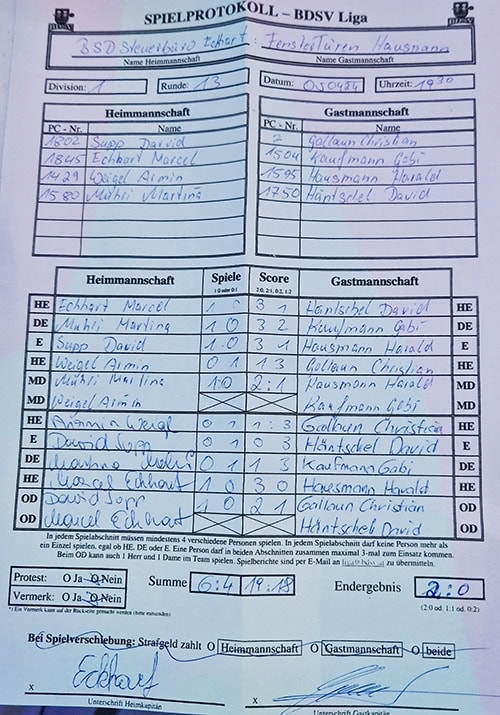 SPIELPROTOKOLL – BDSV Liga
BSD Steuerbüro Eckhart : Fenster Türen Hausmann
Name Heimmannschaft Name Gastmannschaft
Division: 1 Runde: 13 Datum: 050424 Uhrzeit: 19 30
Heimmannschaft Gastmannschaft
PC - Nr. Name PC - Nr. Name
1802 Supp David 2 Gollaun Christian
1845 Eckhart Marcel 1504 Kaufmann Gabi
1429 Weigel Armin 1595 Hausmann Harald
1580 Mührl Martina 1750 Häntschel David
Heimmannschaft Spiele Score Gastmannschaft
1:0 oder 0:1 3:0, 2:1, 0:2, 1:2
HE Eckhart Marcel 1 0 3 1 Häntschel David HE
DE Mührl Martina 1 0 3 2 Kaufmann Gabi DE
E Supp David 1 0 3 1 Hausmann Harald E
HE Weigel Armin 0 1 1 3 Gollaun Christian HE
MD Mührl Martina 1:0 2:1 Hausmann Harald MD
MD Weigel Armin Kaufmann Gabi MD
HE Armin Weigl 0 1 1:3 Gollaun Christian HE
E David Supp 0 1 0 3 Häntschel David E
DE Martina Mührl 0 1 1 3 Kaufmann Gabi DE
HE Marcel Eckhart 1 0 3 0 Hausmann Harald HE
OD David Supp 1 0 2 1 Gollaun Christian OD
OD Marcel Eckhart Häntschel David OD
In jedem Spielabschnitt müssen mindestens 4 verschiedene Personen spielen. In jedem Spielabschnitt darf keine Person mehr als
ein Einzel spielen, egal ob HE, DE oder E. Eine Person darf in beiden Abschnitten zusammen maximal 3-mal zum Einsatz kommen.
Beim OD kann auch 1 Herr und 1 Dame im Team spielen. Spielberichte sind per E-Mail an liga@bdsv.at zu übermitteln.
Protest: O Ja O Nein Summe 6:4 19:18 Endergebnis 2:0
Vermerk: O Ja O Nein (2:0 od. 1:1 od. 0:2)
*) Ein Vermerk kann auf der Rückseite gemacht werden (bitte ankreuzen)
Bei Spielverschiebung: Strafgeld zahlt O Heimmannschaft O Gastmannschaft O beide
x Eckhart x
Unterschrift Heimkapitän Unterschrift Gastkapitän